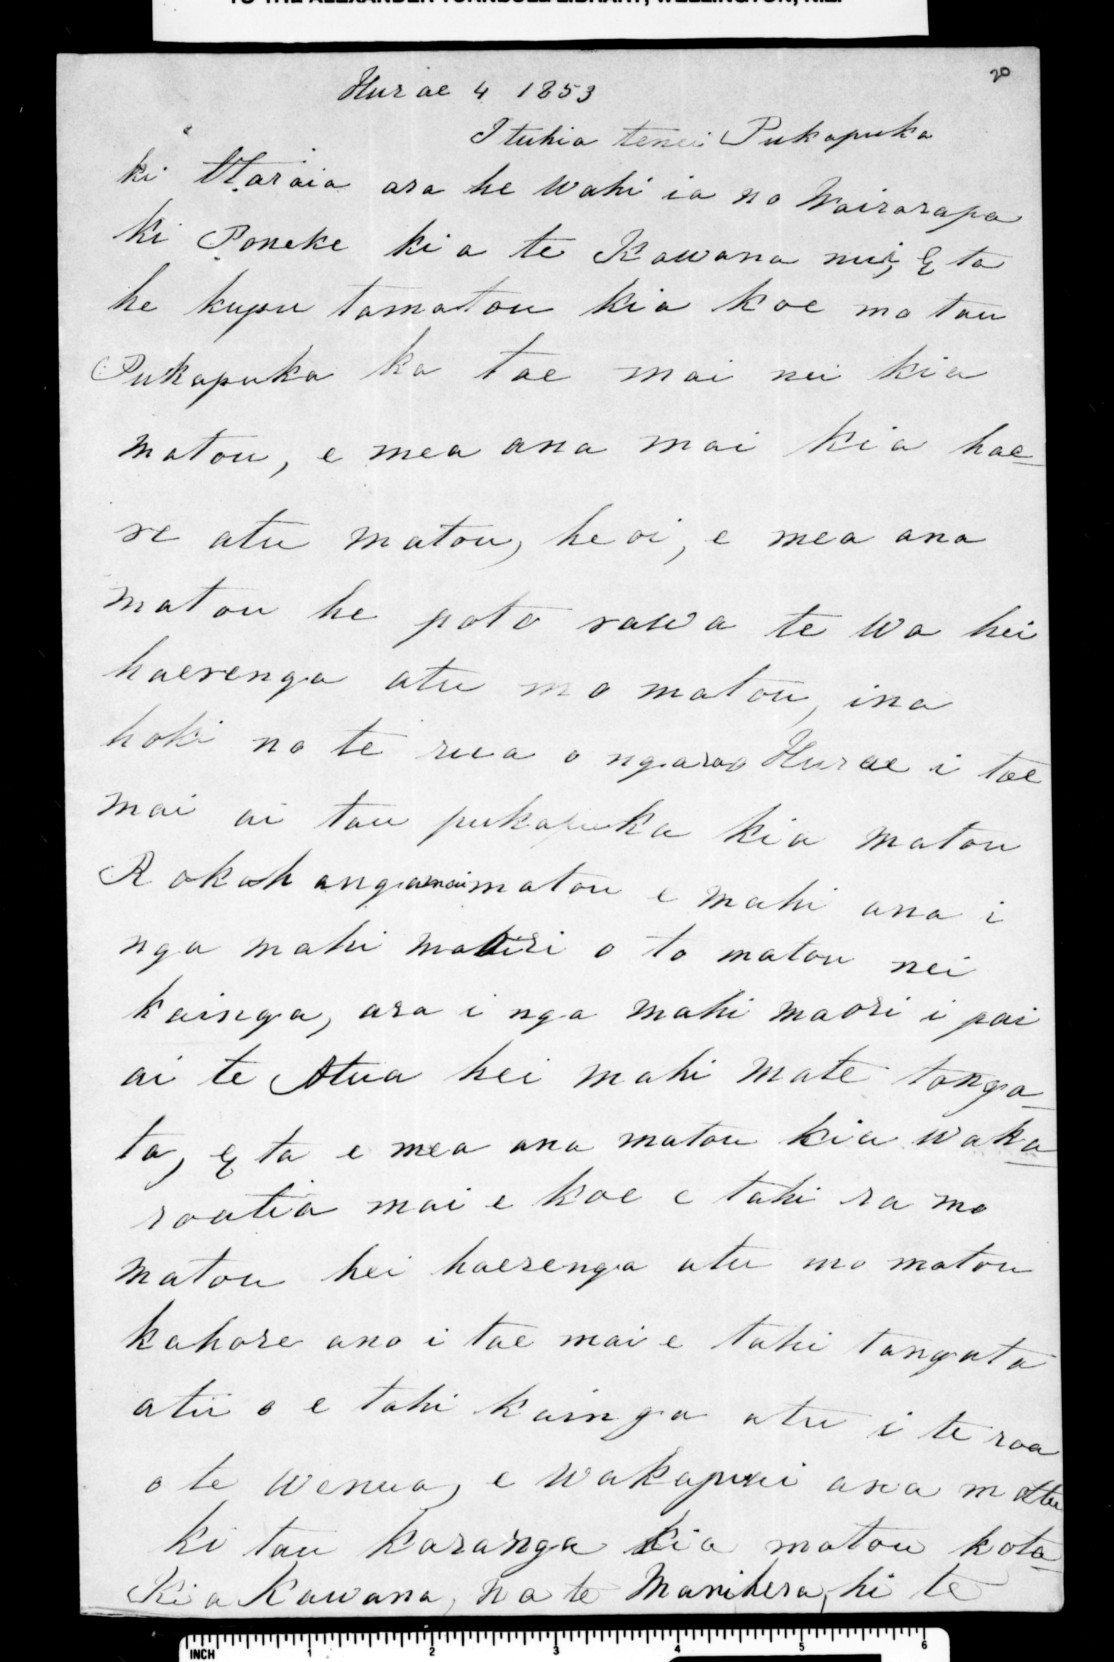 TO THE ALEXANDER TURNBULL LIBRARY, WELLINGTON, N.Z.
20
Hurae 4 1853
I tuhia tenei Pukapuka
ki Taraia ara he wahi ia no Wairarapa
ki Poneke kia te Kawana nui, E ta
he kupu tamatou kia koe mo tau
Pukapuka ka tae mai nei kia
matou, e mea ana mai kia hae-
re atu matou, heoi, e mea ana
matou he poto rawa te wa hei
haerenga atu mo matou, ina
hoki no te rua o ngaraa Hurae i tae
mai ai tau pukapuka kia matou
Rokohangamai matou e mahi ana i
nga mahi maori o to matou nei
kainga, ara i nga mahi maori i pai
ai te Atua hei mahi mate tanga-
ta, E ta e mea ana matou kia waka-
roatia mai e koe e tahi ra mo
matou hei haerenga atu mo matou
kahore ano i tae mai e tahi tangata
atu o e tahi kainga atu i te roa
o te wenua, e wakapuai ana matu
ki tau karanga kia matou kota-
Kia Kawana, na te Manihera, ki te
INCH 1 2 3 4 5 6